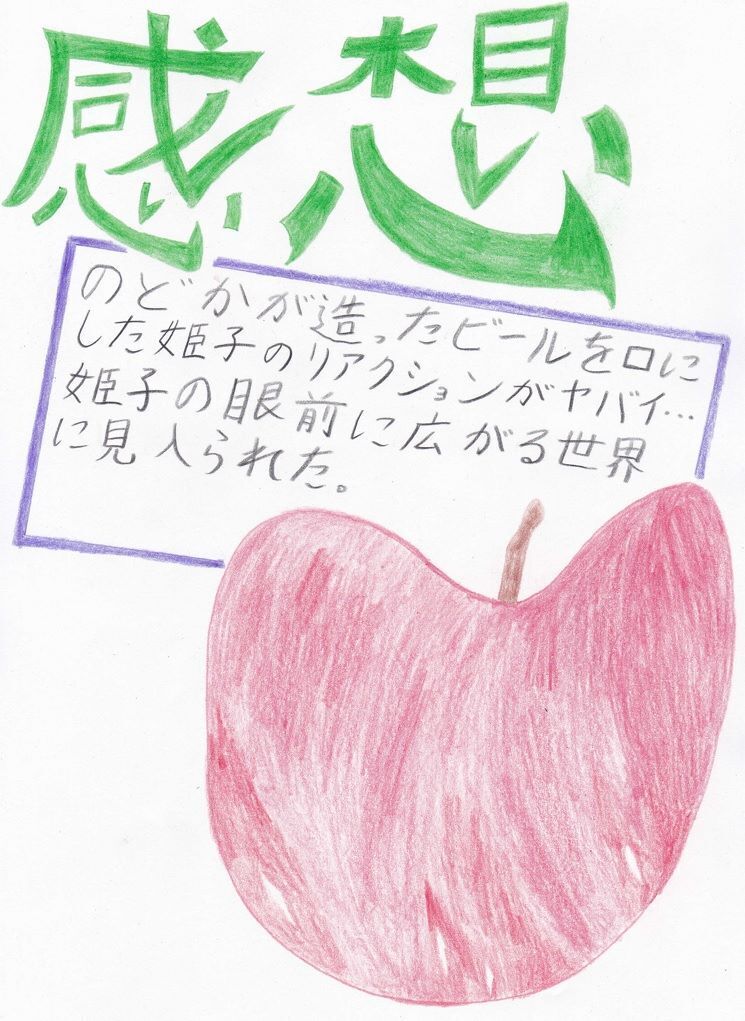 感想
のどかが造ったビールを口に
した姫子のリアクションがヤバイ…
姫子の眼前に広がる世界
に見入られた。